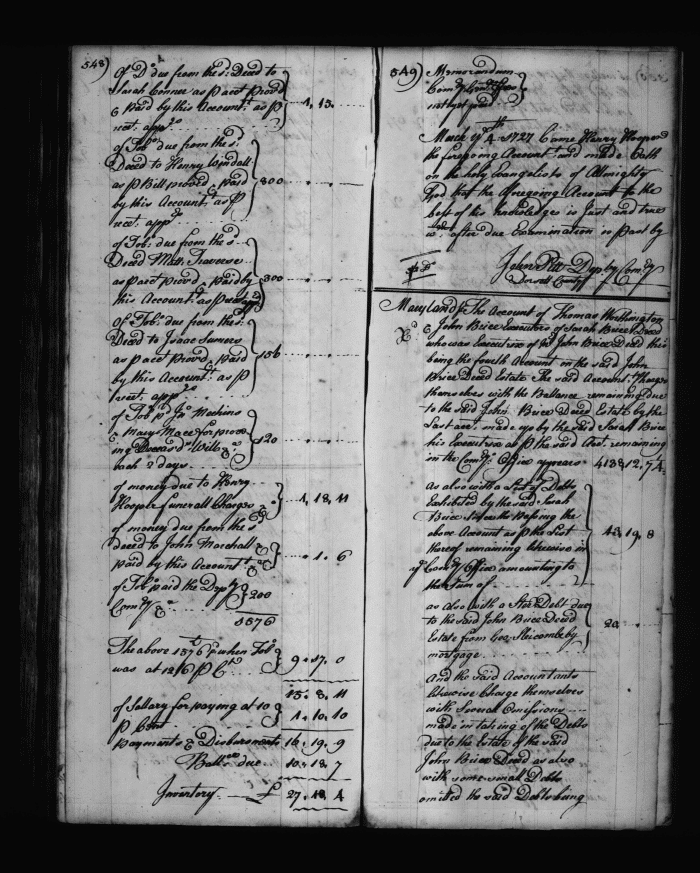 548)
Of Do due from the sd. Deced to
Sarah Conner as p acct Provd
& Paid by this Accountt. as p 1, 13, ....
rect. appr. ........
of Tobo. due from the sd.
Deced to Henry Windall
as p Bill provd. paid 800
by this Accountt. as p
rect. appr.
of Tobo. due from the sd.
Deced Matt. Traverse
as p acct provd. paid by 300
this Accountt. as p rect app
Of Tobo. due from the sd.
Deced to Isaac Sumers
as p acct provd. paid 156
by this Accountt. as p
rect. appr.
of Tobo. p Jno. Meekins
& Mary Mace for prov
ing Deceasds Will & 120
each 2 days.
of money due to Henry
Hooper funerall Charges 1, 18, 11
of money due from the sd
deced to John Marshall &
paid by this Accountt. &c . 1. 6
of Tobo. paid the Depy
Comry &c 200
1576
The above 1576 when Tobo
was at 12/6 p Ct. 9. 17. 0
15. 8. 11
of Sallary for paying at 10
p Cent 1. 10. 10
Payments & Disbursmts 16. 19. 9
Balla. due .. 10. 18. 7
Inventory — £ 27. 18. 4
549) Memorandum
not yet paid
March ye 4th 1727 Came Henry Hooper and
the foregoing Accountt and made Oath
on the holy Evangelists of Almighty
God that the Aforegoing Account to the
best of his knowledge is Just and true
wch. after due Examination is past by
John Pitt Dep by Comry
Dorsett County
Maryland ss The Account of Thomas Worthington
& John Brice Executors of Sarah Brice Deced
who was Executrix of John Brice Deced this
being the fourth Account on the said John
Brice Deced Estate The said Accountt. Charge
themselves with the Ballance remaining due
to the said John Brice Deced Estate by the
Last acct. made up by the said Sarah Brice
his Executrix as p the said Acct. remaining
in the Comrys. Office appears 4138. 12. 7 1/4
As also with a List of Debts
Exhibited by the said Sarah
Brice since the Passing the
above Account as p the List 43, 19, 8
thereof remaining likewise in
ye Comrys Office amounting to
the Sum of
as also with a Ster. Debt due
to the said John Brice Deced 20
Estate from Geo. Slicombe by
mortgage
And the said Accountants
likewise Charge themselves
with Severall Omissions
made in taking of the Debts
due to the Estate of the said
John Brice Deced as also
with some small Debts
omitted the said Debts being